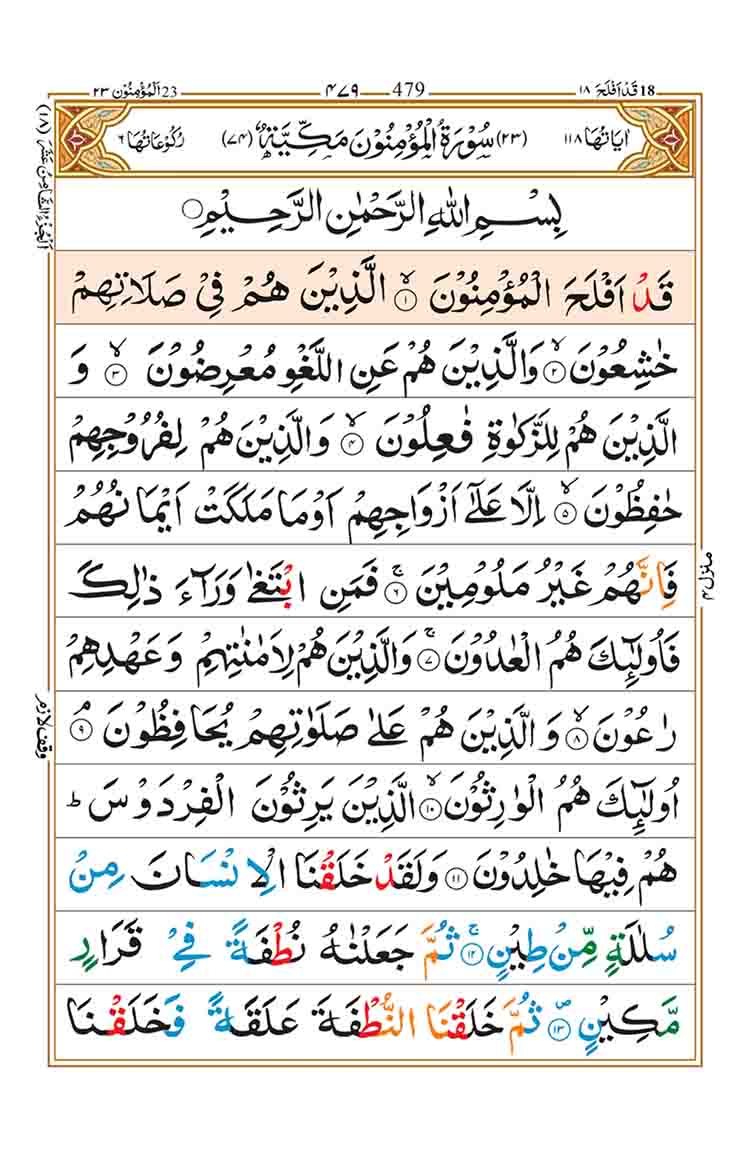 18 قَدْ اَفْلَحَ ۱۸ 479 ۴۷۹ 23 اَلْمُؤْمِنُوْن ۲۳
اٰيَاتُهَا ۱۱۸ (۲۳) سُوْرَةُ الْمُؤْمِنُوْنَ مَكِّيَّةٌ (۷۴) رُكُوْعَاتُهَا ۶
اَلْجُزْءُ الثَّامِنُ عَشَرَ (۱۸)
بِسْمِ اللّٰهِ الرَّحْمٰنِ الرَّحِيْمِ
قَدْ اَفْلَحَ الْمُؤْمِنُوْنَ ۙ۱ الَّذِيْنَ هُمْ فِيْ صَلَاتِهِمْ
خٰشِعُوْنَ ۙ۲ وَالَّذِيْنَ هُمْ عَنِ اللَّغْوِ مُعْرِضُوْنَ ۙ۳ وَ
الَّذِيْنَ هُمْ لِلزَّكٰوةِ فٰعِلُوْنَ ۙ۴ وَالَّذِيْنَ هُمْ لِفُرُوْجِهِمْ
حٰفِظُوْنَ ۙ۵ اِلَّا عَلٰٓى اَزْوَاجِهِمْ اَوْ مَا مَلَكَتْ اَيْمَانُهُمْ
فَاِنَّهُمْ غَيْرُ مَلُوْمِيْنَ ۚ۶ فَمَنِ ابْتَغٰى وَرَآءَ ذٰلِكَ
منزل ۴
فَاُولٰٓئِكَ هُمُ الْعٰدُوْنَ ۚ۷ وَالَّذِيْنَ هُمْ لِاَمٰنٰتِهِمْ وَعَهْدِهِمْ
رٰعُوْنَ ۙ۸ وَالَّذِيْنَ هُمْ عَلٰى صَلَوٰتِهِمْ يُحَافِظُوْنَ ۘ۹
وقف لازم
اُولٰٓئِكَ هُمُ الْوٰرِثُوْنَ ۙ۱۰ الَّذِيْنَ يَرِثُوْنَ الْفِرْدَوْسَ ؕ
هُمْ فِيْهَا خٰلِدُوْنَ ۱۱ وَلَقَدْ خَلَقْنَا الْاِنْسَانَ مِنْ
سُلٰلَةٍ مِّنْ طِيْنٍ ۚ۱۲ ثُمَّ جَعَلْنٰهُ نُطْفَةً فِيْ قَرَارٍ
مَّكِيْنٍ ۪۱۳ ثُمَّ خَلَقْنَا النُّطْفَةَ عَلَقَةً فَخَلَقْنَا